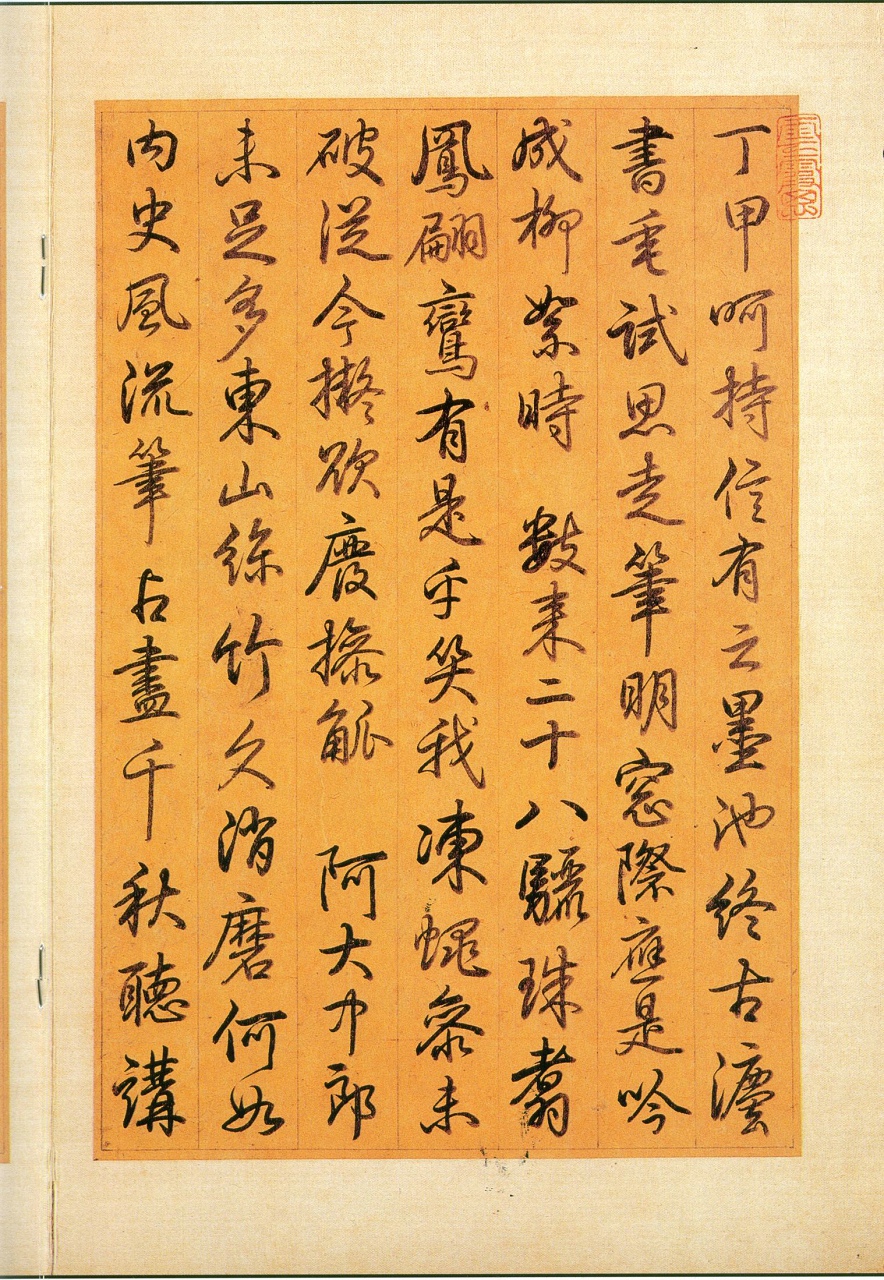 丁甲呵持信有之墨池終古
書垂試思走筆明窓際應是吟
成柳絮時 數來二十八驪珠翥
鳳翩鸞有是乎笑我凍蠅參未
破從今擬欲廢操觚 阿大中郎
未足多東山絲竹久消磨何如
内史風流筆占盡千秋聽講